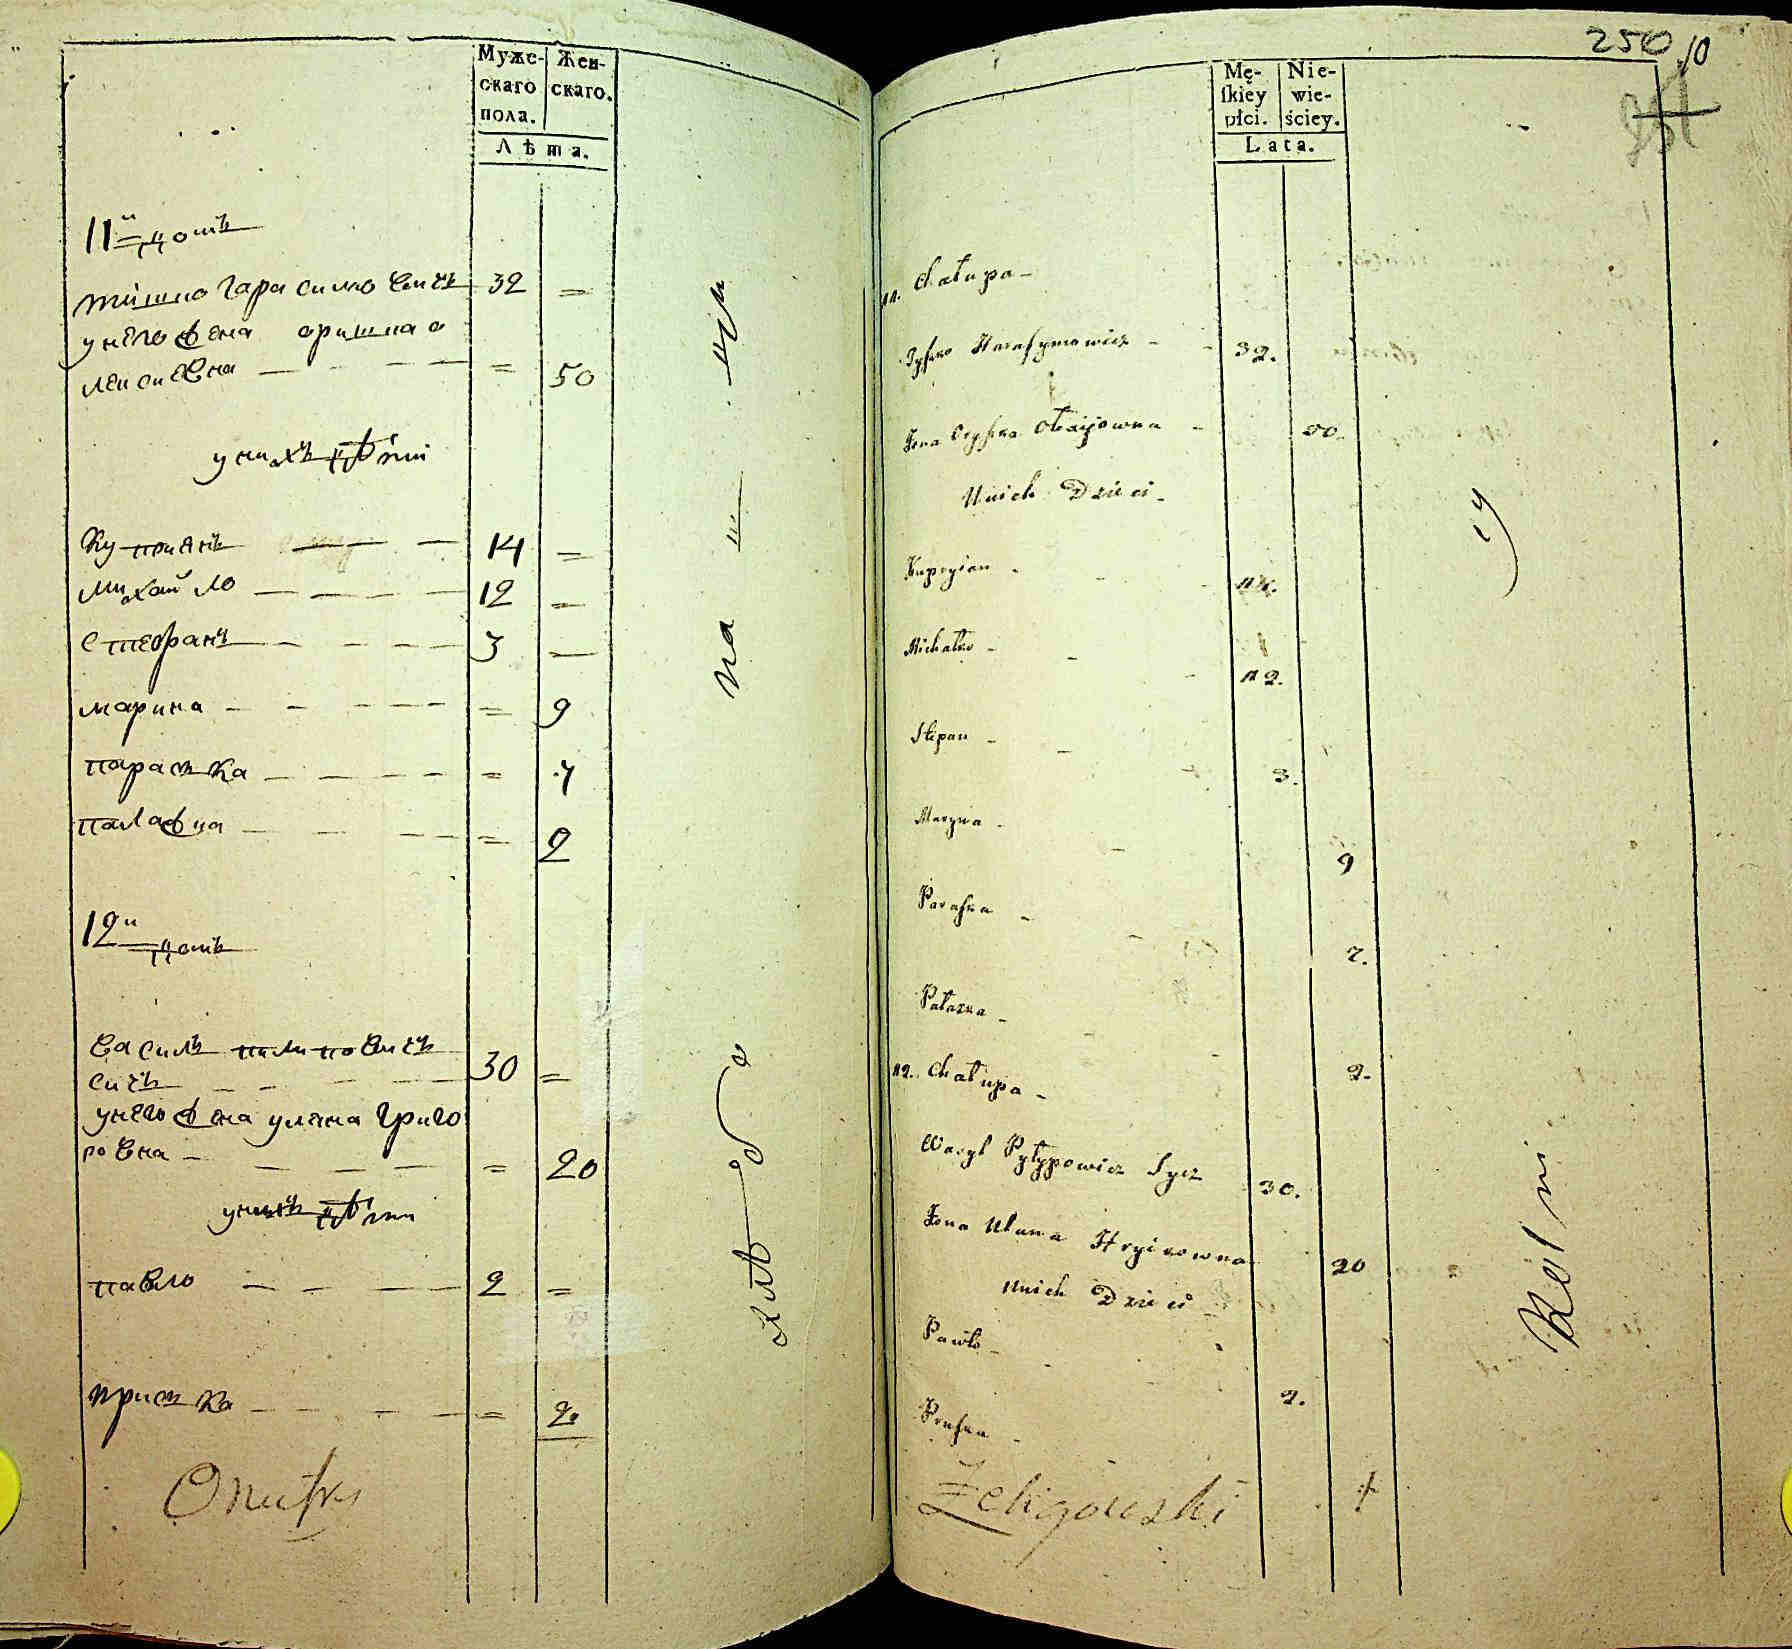 Муже-
скаго
пола.
Жен-
скаго.
Лѣта.
11й домъ
тишко гарасимовичъ 32 =
унего жена оришка о
лексиевна = 50
унихъ дѣти
Куприянъ 14 =
михайло 12 =
Стефанъ 3 =
марина = 9
параска = 7
палажка = 2
12й домъ
василь пилиповичъ
сичъ 30 =
унего жена уляна григо
ровна = 20
унихъ дѣти
павло 2 =
приска = 2.
250
10
Mę-
skiey
płci.
Nie-
wie-
ściey.
Lata.
11. Chałupa
Tyszko Harasymowicz 32.
Żona Oryszka Olexijowna 50.
Unich Dzieci
Kupryian 14.
Michałko 12.
Stepan 3.
Maryna 9
Paraska 7.
Pałazka 2.
12. Chałupa
Wasyl Pyłypowicz Sycz 30.
Żona Ulana Hryi owna 20
Unich Dzieci
Pawło 2.
Pryska
Żeligowski